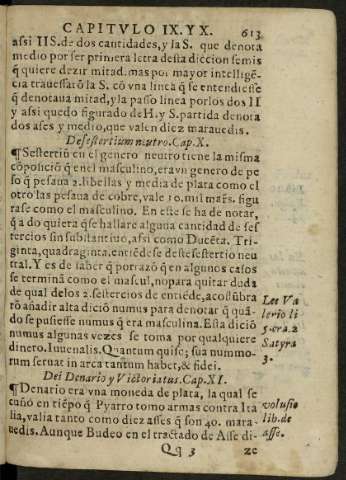 CAPITVLO IX.Y X. 613
assi IIS. de dos cantidades, y la S. que denota
medio por ser primera letra desta diccion semis
q̃ quiere dezir mitad. mas por mayor intelligẽ
cia trauessarõ la S. cõ vna linea q̃ se entendiesse
q̃ denotaua mitad, y la passo linea por los dos II
y assi quedo figurado de H. y S. partida denota
dos ases y medio, que valen diez marauedis.
De sestertium neutro. Cap. X.
¶Sestertiũ en el genero neutro tiene la misma
cõposiciõ q̃ en el masculino, era vn genero de pe
so q̃ pesaua 2. libellas y media de plata como el
otro las pesaua de cobre, vale 10. mil mar̃s. figu
rase como el masculino. En este se ha de notar,
q̃ a do quiera q̃ se hallare alguna cantidad de ses
tercios sin substantiuo, assi como Ducẽta. Tri-
ginta, quadraginta. entiẽdese deste sestertio neu
tral. Y es de saber q̃ por razõ q̃ en algunos casos
se terminã como el mascul, no para quitar duda
de qual delos 2. sestercios de entiẽde, acostũbra
rõ añadir alta dictiõ numus para denotar q̃ quã-
do se pusiesse numus q̃ era masculina. Esta dictiõ
numus algunas vezes se toma por qualquiere
dinero. Iuuenalis. Quantum quisq; sua nummo-
rum seruat in arca tantum habet, & fidei.
Lee Va
lerio li
5. era. 2
Satyra
3.
Del Denario y Victoriatus. Cap. XI.
¶Denario era vna moneda de plata, la qual se
cuñó en tiẽpo q̃ Pyarro tomo armas contra Ita
lia, valia tanto como diez asses q̃ son 40. mara-
uedis. Aunque Budeo en el tractado de Asse di-
volusio
lib. de
asse.
Qq 3 ze